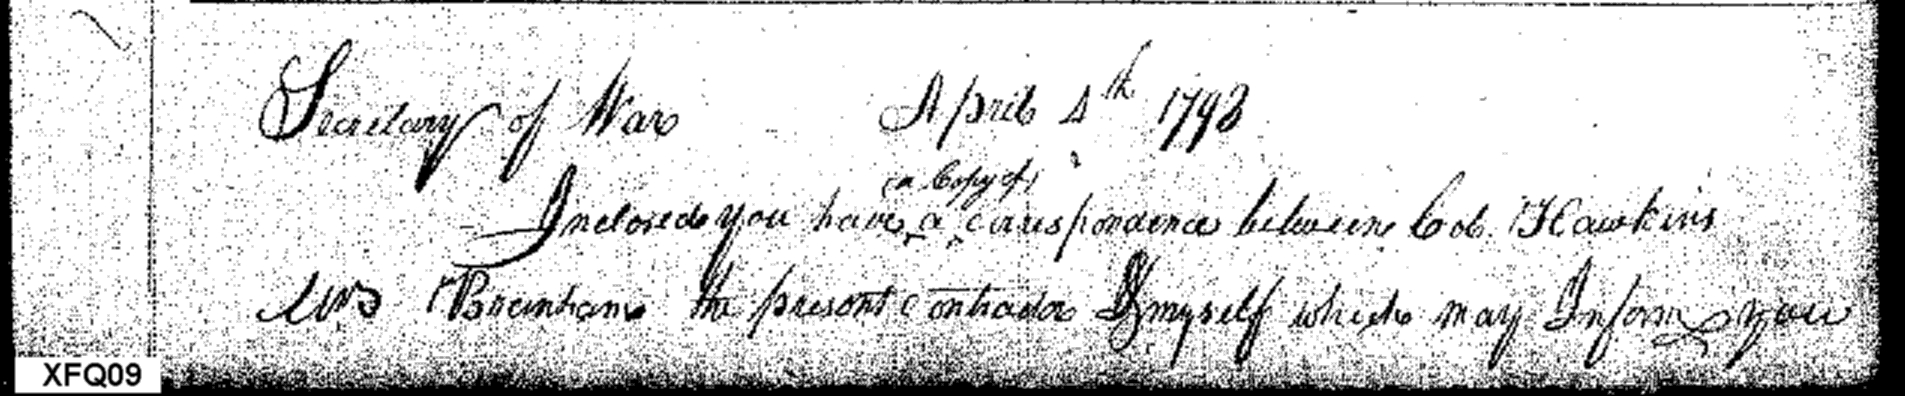 Secretary of War April 4th 1798
(a Copy of)
Inclosed you have a correspondence between Col. Hawkins
Mr Brenham the present contractor & myself which may Inform you
XFQ09